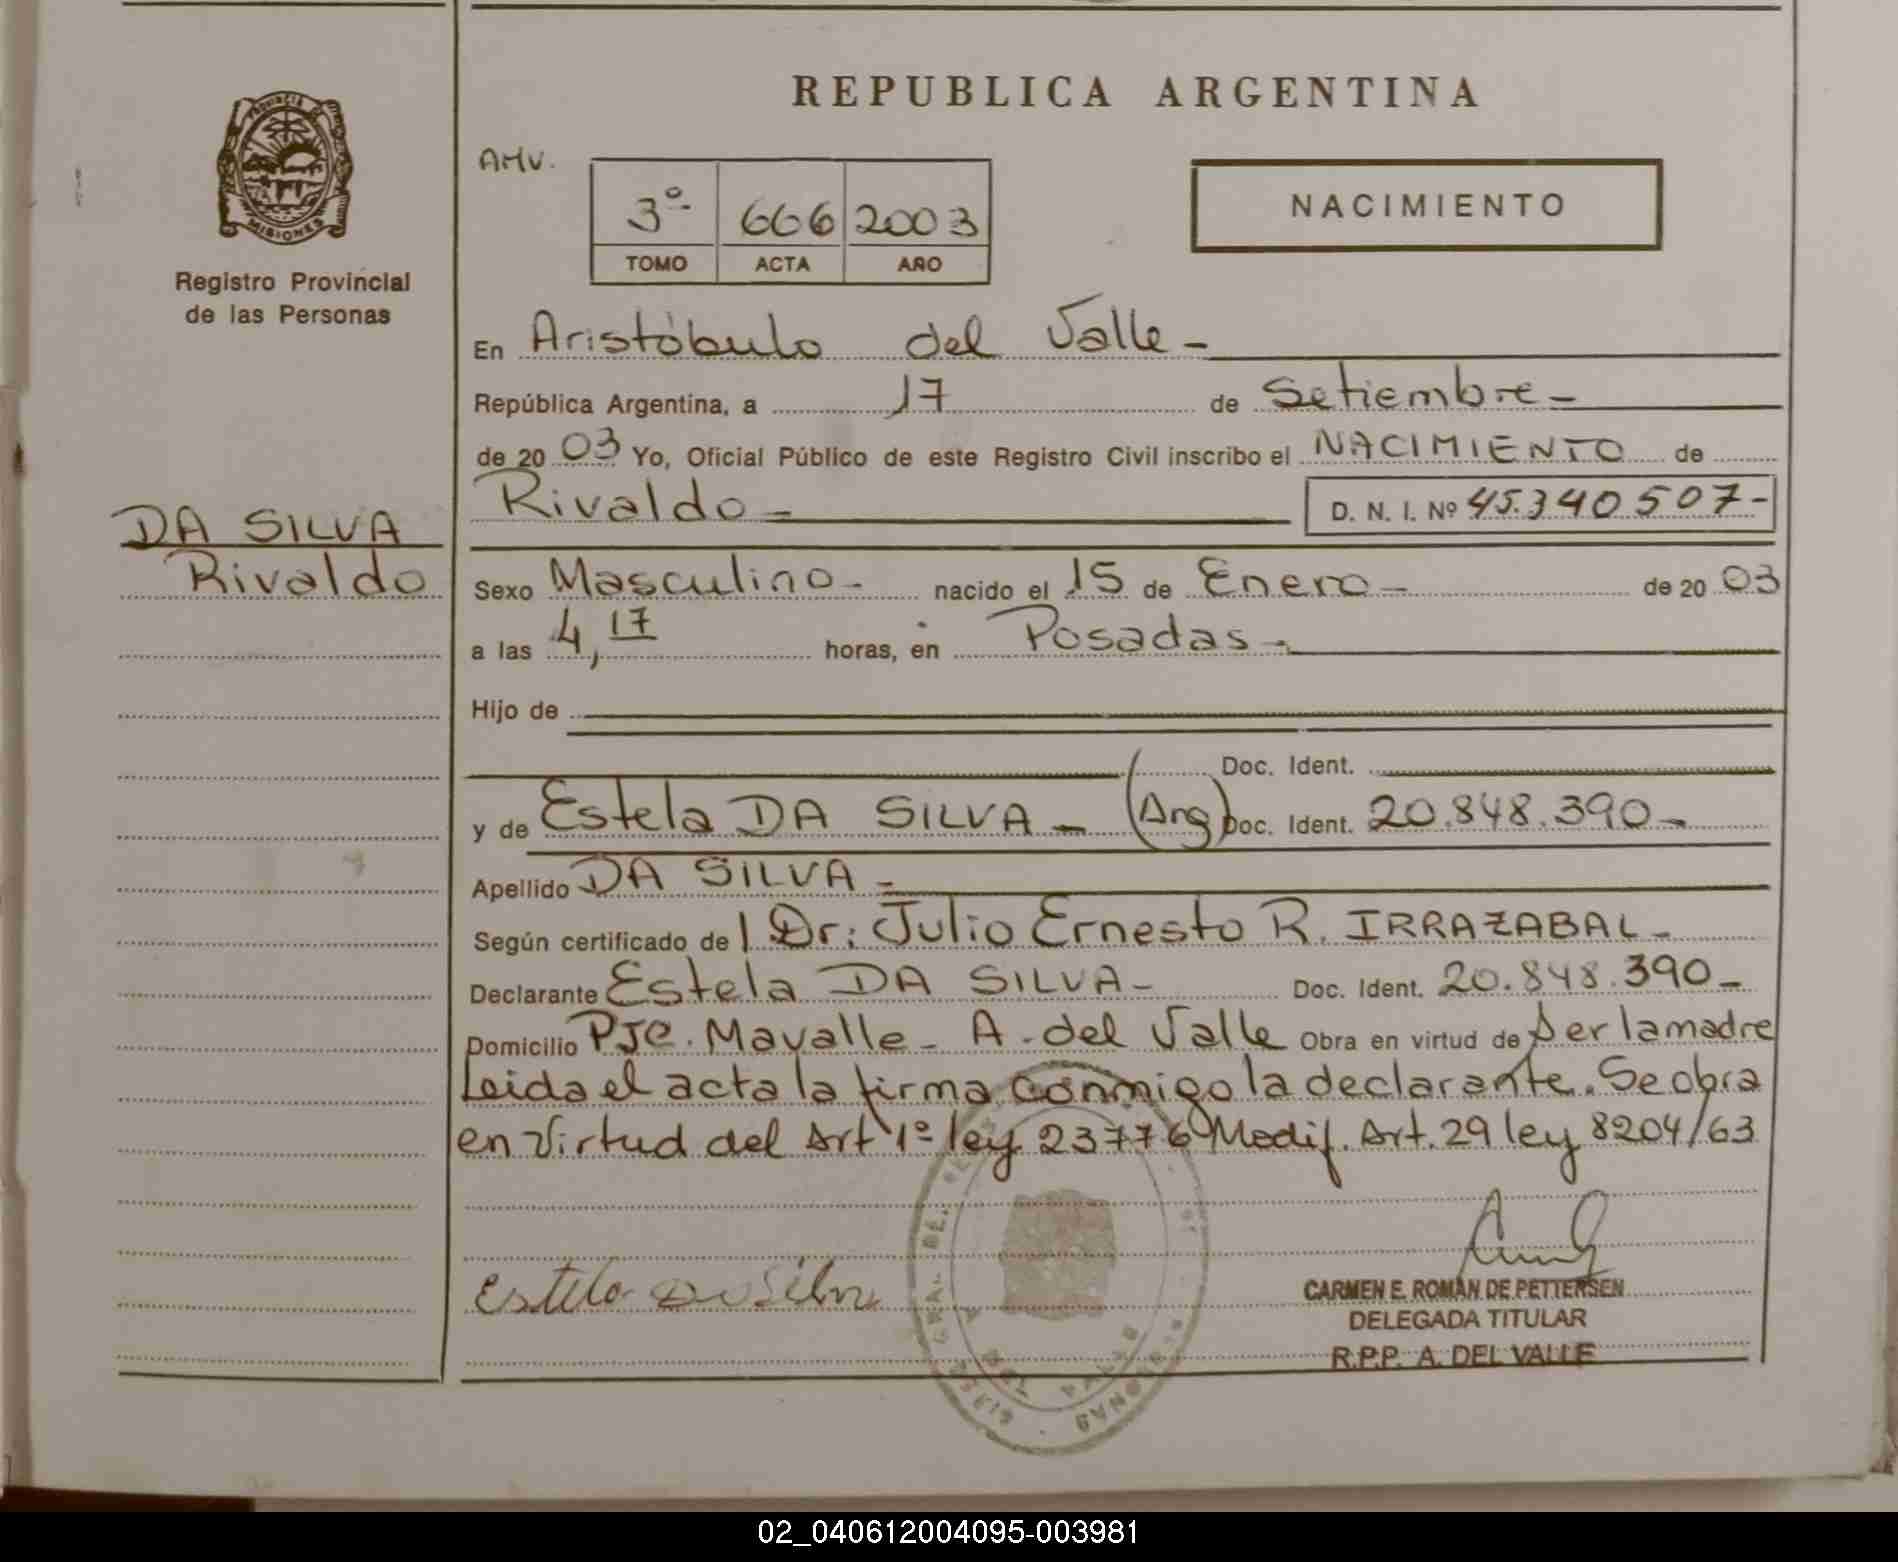 REPUBLICA ARGENTINA
PROVINCIA MISIONES
Registro Provincial
de las Personas
AMV.
3º 666 2003
TOMO ACTA AÑO
NACIMIENTO
En Aristóbulo del Valle -
República Argentina, a 17 de Setiembre -
de 20 03 Yo, Oficial Público de este Registro Civil inscribo el NACIMIENTO de
Rivaldo - D. N. I. Nº 45.340507-
DA SILVA
Rivaldo
Sexo Masculino - nacido el 15 de Enero - de 20 03
a las 4,17 horas, en Posadas -
Hijo de
Doc. Ident.
y de Estela DA SILVA - (Arg) Doc. Ident. 20.848.390-
Apellido DA SILVA -
Según certificado de Dr: Julio Ernesto R. IRRAZABAL -
Declarante Estela DA SILVA - Doc. Ident. 20.848.390-
Domicilio PJe. Mavalle - A. del Valle Obra en virtud de ser la madre
Leida el acta la firma conmigo la declarante. Se obra
en virtud del Art 1º ley 23776 Modif. Art. 29 ley 8204/63
Estela Da Silva
CARMEN E. ROMAN DE PETTERSEN
DELEGADA TITULAR
R.P.P. A. DEL VALLE
02_040612004095-003981